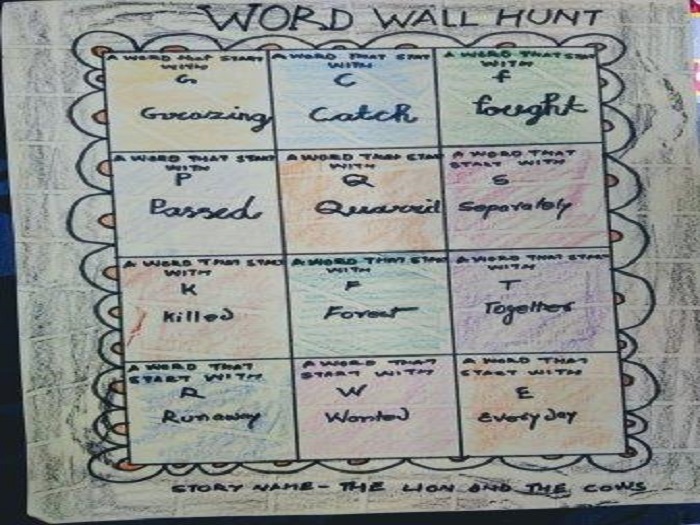 WORD WALL HUNT
A WORD THAT START WITH
G
Grazing
A WORD THAT START WITH
C
Catch
A WORD THAT START WITH
f
fought
A WORD THAT START WITH
P
Passed
A WORD THAT START WITH
Q
Quarreil
A WORD THAT START WITH
S
Separately
A WORD THAT START WITH
K
Killed
A WORD THAT START WITH
F
Forest
A WORD THAT START WITH
T
Together
A WORD THAT START WITH
R
Runaway
A WORD THAT START WITH
W
Wanted
A WORD THAT START WITH
E
Everyday
STORY NAME - THE LION AND THE COWS